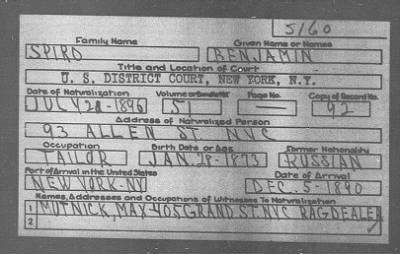 5160
Family Name Given Name or Names
SPIRO BENJAMIN
Title and Location of Court
U. S. DISTRICT COURT, NEW YORK, N.Y.
Date of Naturalization Volume or Bundle No. Page No. Copy of Record No.
JULY 28-1896 51 — 92
Address of Naturalized Person
93 ALLEN ST NYC
Occupation Birth Date or Age Former Nationality
TAILOR JAN. 28-1873 RUSSIAN
Port of Arrival in the United States Date of Arrival
NEW YORK-NY DEC. 5-1890
Names, Addresses and Occupations of Witnesses To Naturalization
1 MUTNICK, MAX-405 GRAND ST. NYC RAG DEALER
2